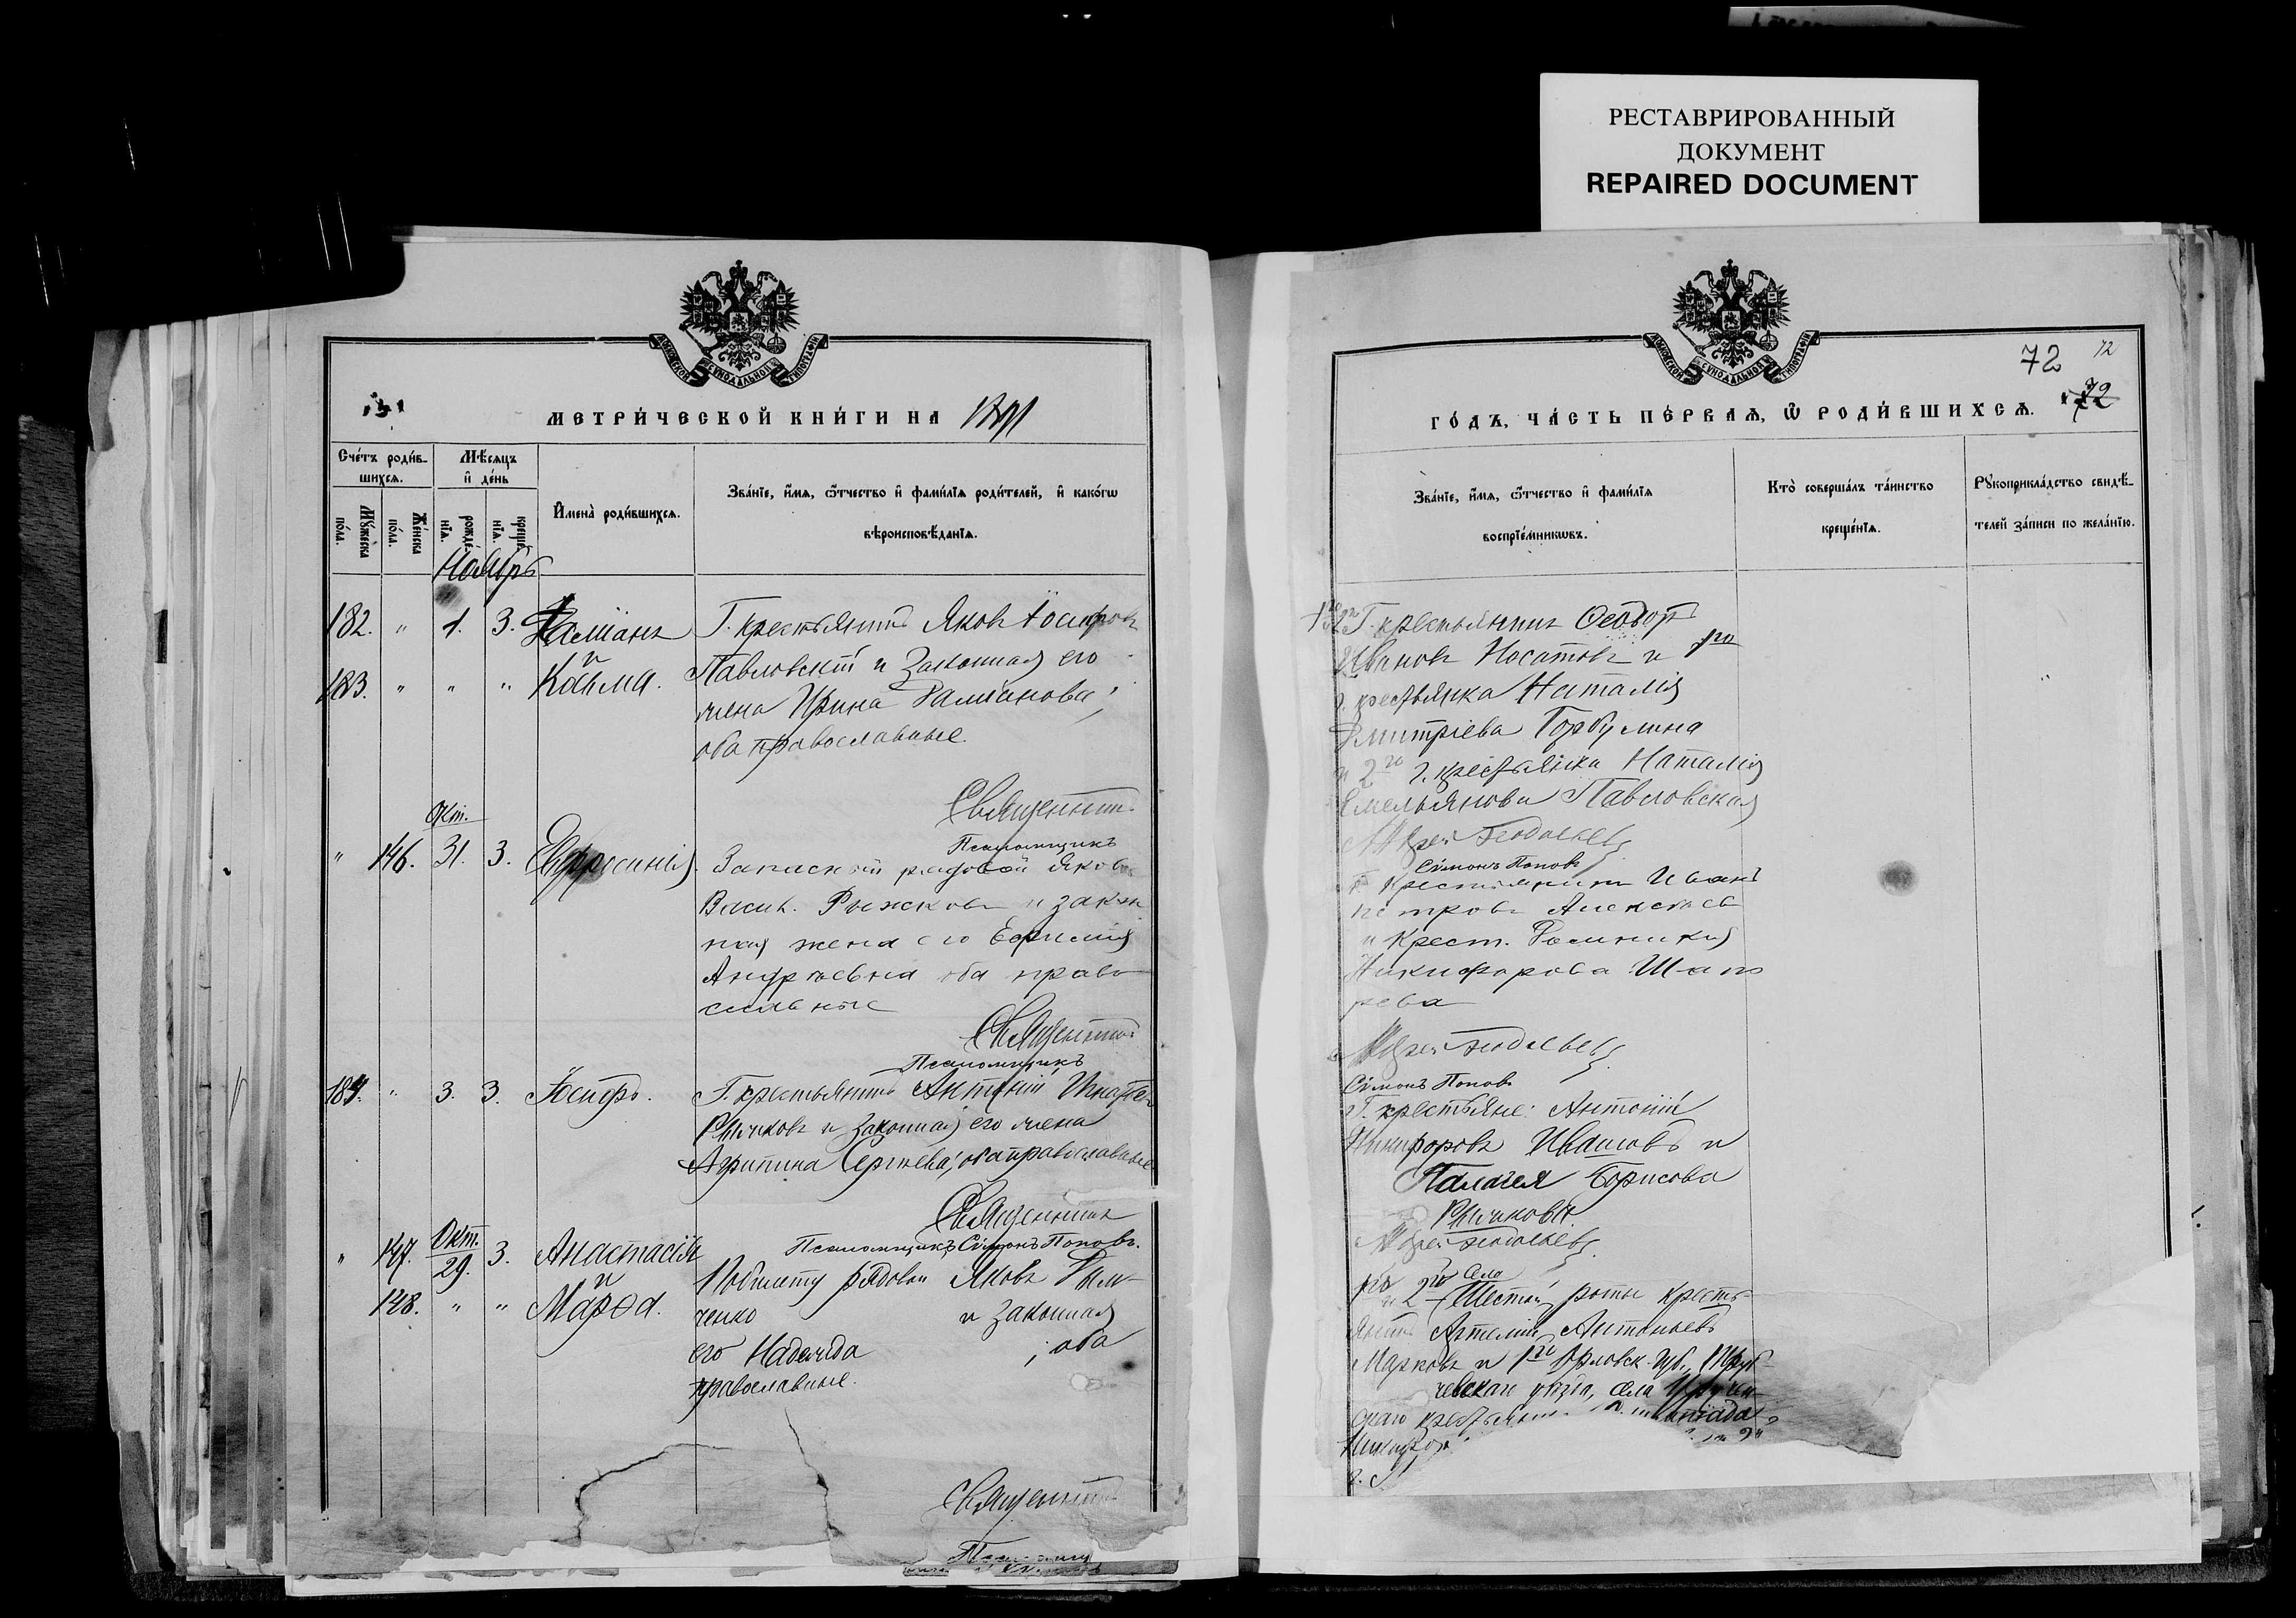 РЕСТАВРИРОВАННЫЙ
ДОКУМЕНТ
REPAIRED DOCUMENT
МЕТРИ́ЧЕСКОЙ КНИ́ГИ НА
Сче́тъ роди́в-
шихсѧ.
Мѣ́сяцъ
и҆ де́нь
Мꙋ́жеска
по́ла.
Же́нска
по́ла.
рожде́
нїѧ.
креще́
нїѧ.
И҆мена̀ роди́вшихсѧ.
Зва́нїе, и҆́мѧ, ѻ҆́тчество и҆ фами́лїѧ роди́телей, и҆ како́гѡ
вѣроисповѣ́данїѧ.
Ноябрь
182. " 1. 3. Даміанъ
и
183. " " " Козьма.
Г. крестьянинъ Яковъ Іосифовъ
Павловскій и законная его
жена Ирина Даміанова;
оба православные.
Священникъ
Псаломщикъ
Окт.
" 146. 31. 3. Евфросинія.
Запасной рядовой Яковъ
Васил. Рыжковъ и закон
ная жена его Евфимія
Андреевна оба право
славные
Священникъ
Псаломщикъ
184. " 3. 3. Іосифъ.
Г. крестьянинъ Антоній Игнатьев
Рычковъ и законная его жена
Агрипина Сергіева; оба православные
Священникъ
Псаломщикъ Симонъ Поповъ.
" 147. Окт. 29. 3. Анастасія
и
148. " " Марѳа.
По билету рядовой Яковъ
ченко и законная
его Надежда ; оба
православные.
Священникъ
72 72
72
ГО́ДЪ, ЧА́СТЬ ПЕ́РВАѦ, Ѡ҆ РОДИ́ВШИХСѦ.
Зва́нїе, и҆́мѧ, ѻ҆́тчество и҆ фами́лїѧ
воспрїе́мникѡвъ.
Кто̀ соверша́лъ та́инство
креще́нїѧ.
Рꙋкоприкла́дство свидѣ́-
телей за́писи по жела́нїю.
Г. крестьянинъ Ѳеодоръ
Ивановъ Носатовъ и 1го
г. крестьянка Наталія
Дмитріева Горбулина
и 2го г. крестьянка Наталія
Емельянова Павловская
Симонъ Поповъ
Г. Крестьянинъ Иванъ
Петровъ Алексѣев
и Крест. Домникія
Никифорова Шапо
рева
Симонъ Поповъ
Г. крестьяне: Антоній
Никифоровъ Ивашовъ и
Палагея Борисова
Рычкова.
1го и 2го села
Шестой роты кресть-
янинъ Артемій Антоньевъ
Марковъ и 1го Орловск. губ., Труб-
чевскаго уѣзда, села
скаго крестьянин